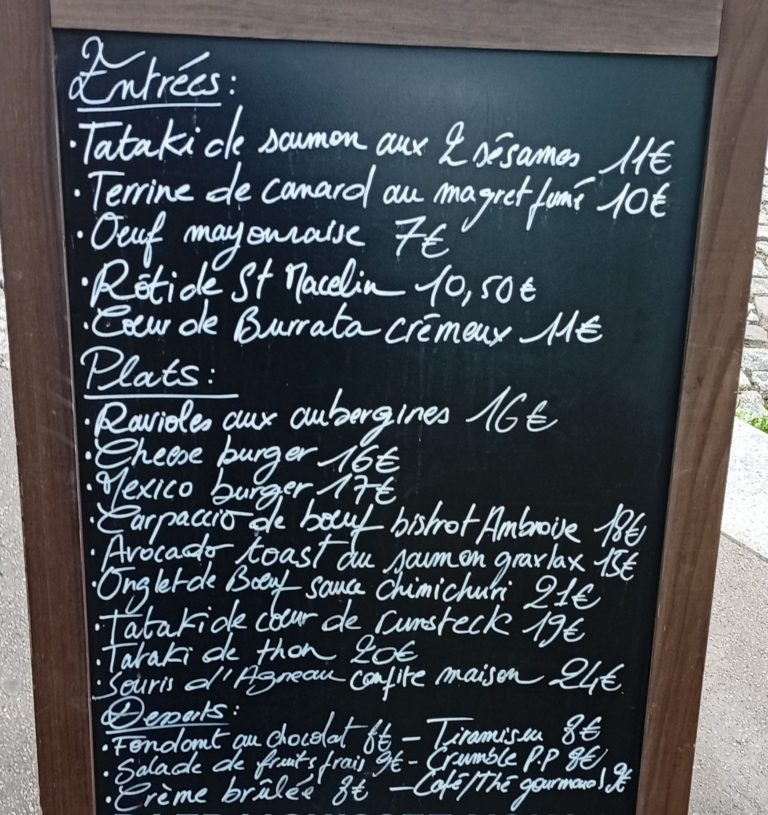 Entrées :
• Tataki de saumon aux 2 sésames 11€
• Terrine de canard au magret fumé 10€
• Oeuf mayonnaise 7€
• Rôti de St Macelin 10,50€
• Cœur de Burrata crémeux 11€
Plats :
• Ravioles aux aubergines 16€
• Cheese burger 16€
• Mexico burger 17€
• Carpaccio de bœuf bistrot Ambroise 18€
• Avocado toast au saumon gravlax 15€
• Onglet de Bœuf sauce chimichuri 21€
• Tataki de cœur de rumsteck 19€
• Tataki de thon 20€
• Souris d'Agneau confite maison 24€
Desserts :
• Fondant au chocolat 8€ – Tiramisu 8€
• Salade de fruits frais 9€ - Crumble P.P 8€
• Crème brûlée 8€ – Café/Thé gourmand 9€